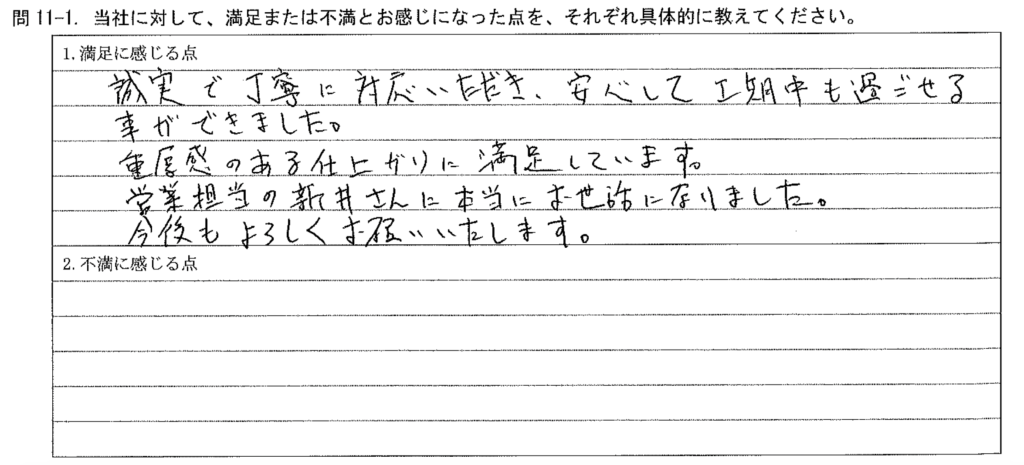 問 11-1. 当社に対して、満足または不満とお感じになった点を、それぞれ具体的に教えてください。
1. 満足に感じる点
誠実で丁寧に対応いただき、安心して工期中も過ごせる
事ができました。
重厚感のある仕上がりに満足しています。
営業担当の新井さんに本当にお世話になりました。
今後もよろしくお願いいたします。
2. 不満に感じる点